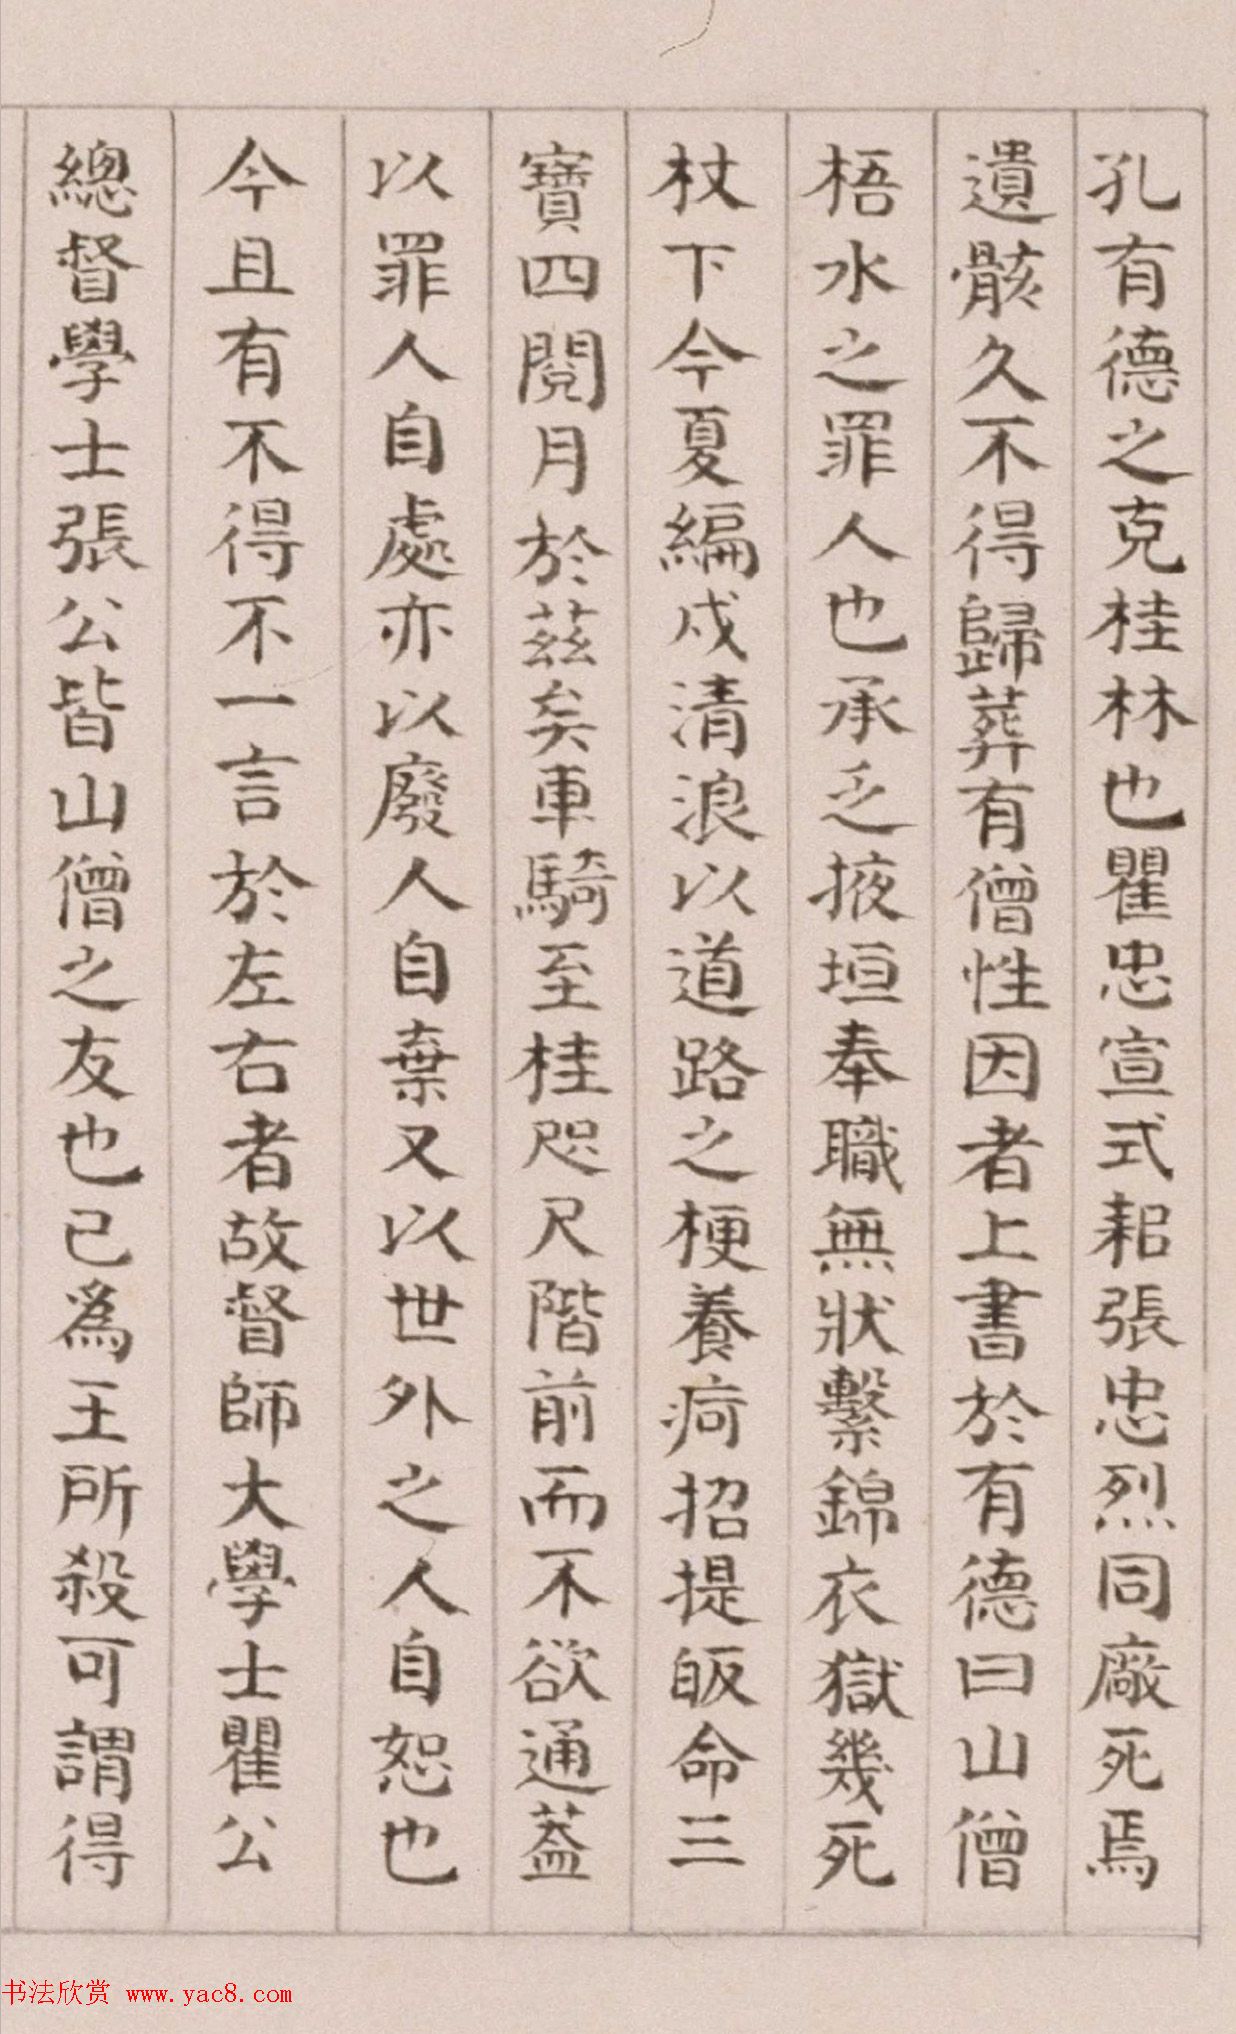 孔有德之克桂林也瞿忠宣式耜張忠烈同廠死焉
遺骸久不得歸葬有僧性因者上書於有德曰山僧
梧水之罪人也承乏掖垣奉職無狀繫錦衣獄幾死
杖下今夏編戍清浪以道路之梗養疴招提皈命三
寶四閱月於茲矣車騎至桂咫尺階前而不欲通蓋
以罪人自處亦以廢人自棄又以世外之人自恕也
今且有不得不一言於左右者故督師大學士瞿公
總督學士張公皆山僧之友也已為王所殺可謂得
书法欣赏 www.yac8.com